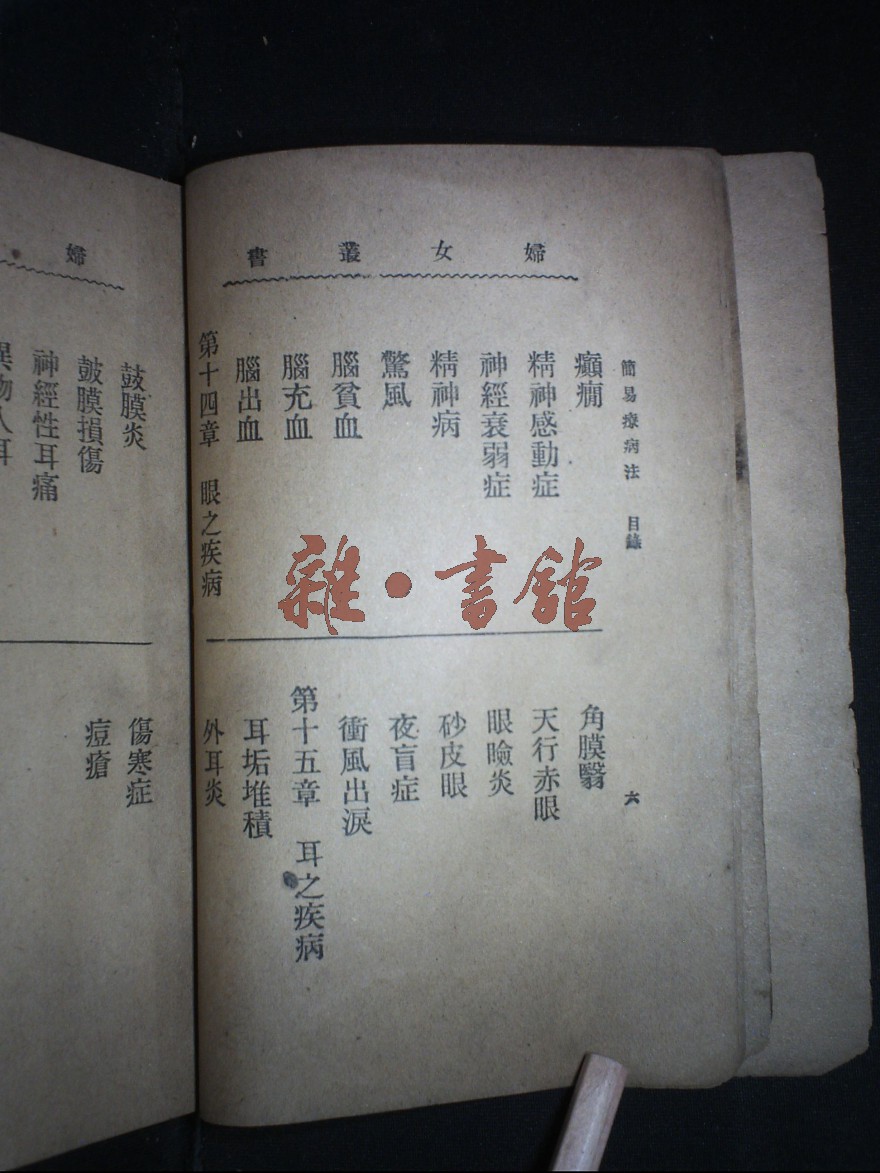 婦女叢書
簡易療病法 目錄
六
癲癇
精神感動症
神經衰弱症
精神病
驚風
腦貧血
腦充血
腦出血
第十四章 眼之疾病
角膜翳
天行赤眼
眼瞼炎
砂皮眼
夜盲症
衝風出淚
第十五章 耳之疾病
耳垢堆積
外耳炎
婦
鼓膜炎
鼓膜損傷
神經性耳痛
異物入耳
傷寒症
痘瘡
雜·書館